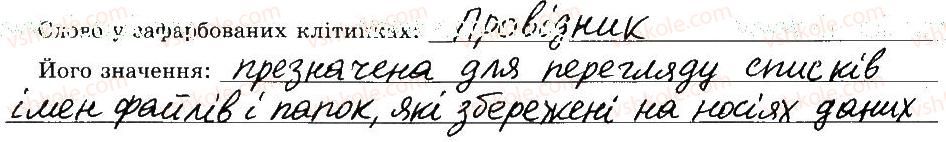 Слово у зафарбованих клітинках: Провідник
Його значення: презначена для перегляду списків
імен файлів і папок, які збережені на носіях даних